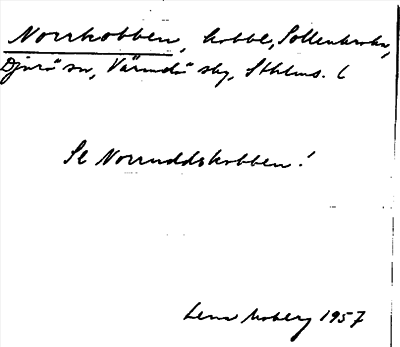 Norrkobben, kobbe, Sollenkroka,
Djurö sn, Värmdö sky, Sthlms. l
Se Norruddskobben!
Lena Moberg 1957